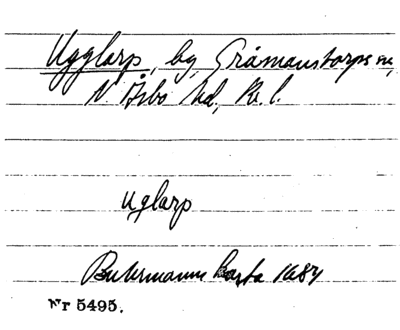 Ugglarp, by, Gråmanstorps sn,
N. Åsbo hd, Kr. l.
Uglarp
Buhrmanns karta 1684
Nr 5495.